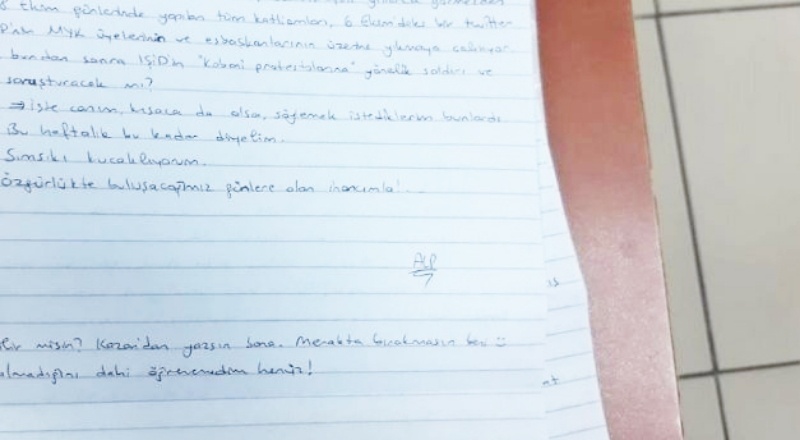 6 Ekim günlerinde yapılan tüm katliamları, 6 Ekim'deki bir twitter
MYK üyelerinin ve eşbaşkanlarının üzerine yıkmaya çalışıyor.
bundan sonra IŞİD'in "Kobani protestolarına" yönelik saldırı ve
soruşturacak mı?
⇒ İşte canım, kısaca da olsa, söylemek istediklerim bunlardı.
Bu haftalık bu kadar diyelim.
Sımsıkı kucaklıyorum.
Özgürlükte buluşacağımız günlere olan inancımla!...
ALP
misin? Kozan'dan yazsın bana. Merakta bırakmasın beni
almadığını dahi öğrenemedim henüz!